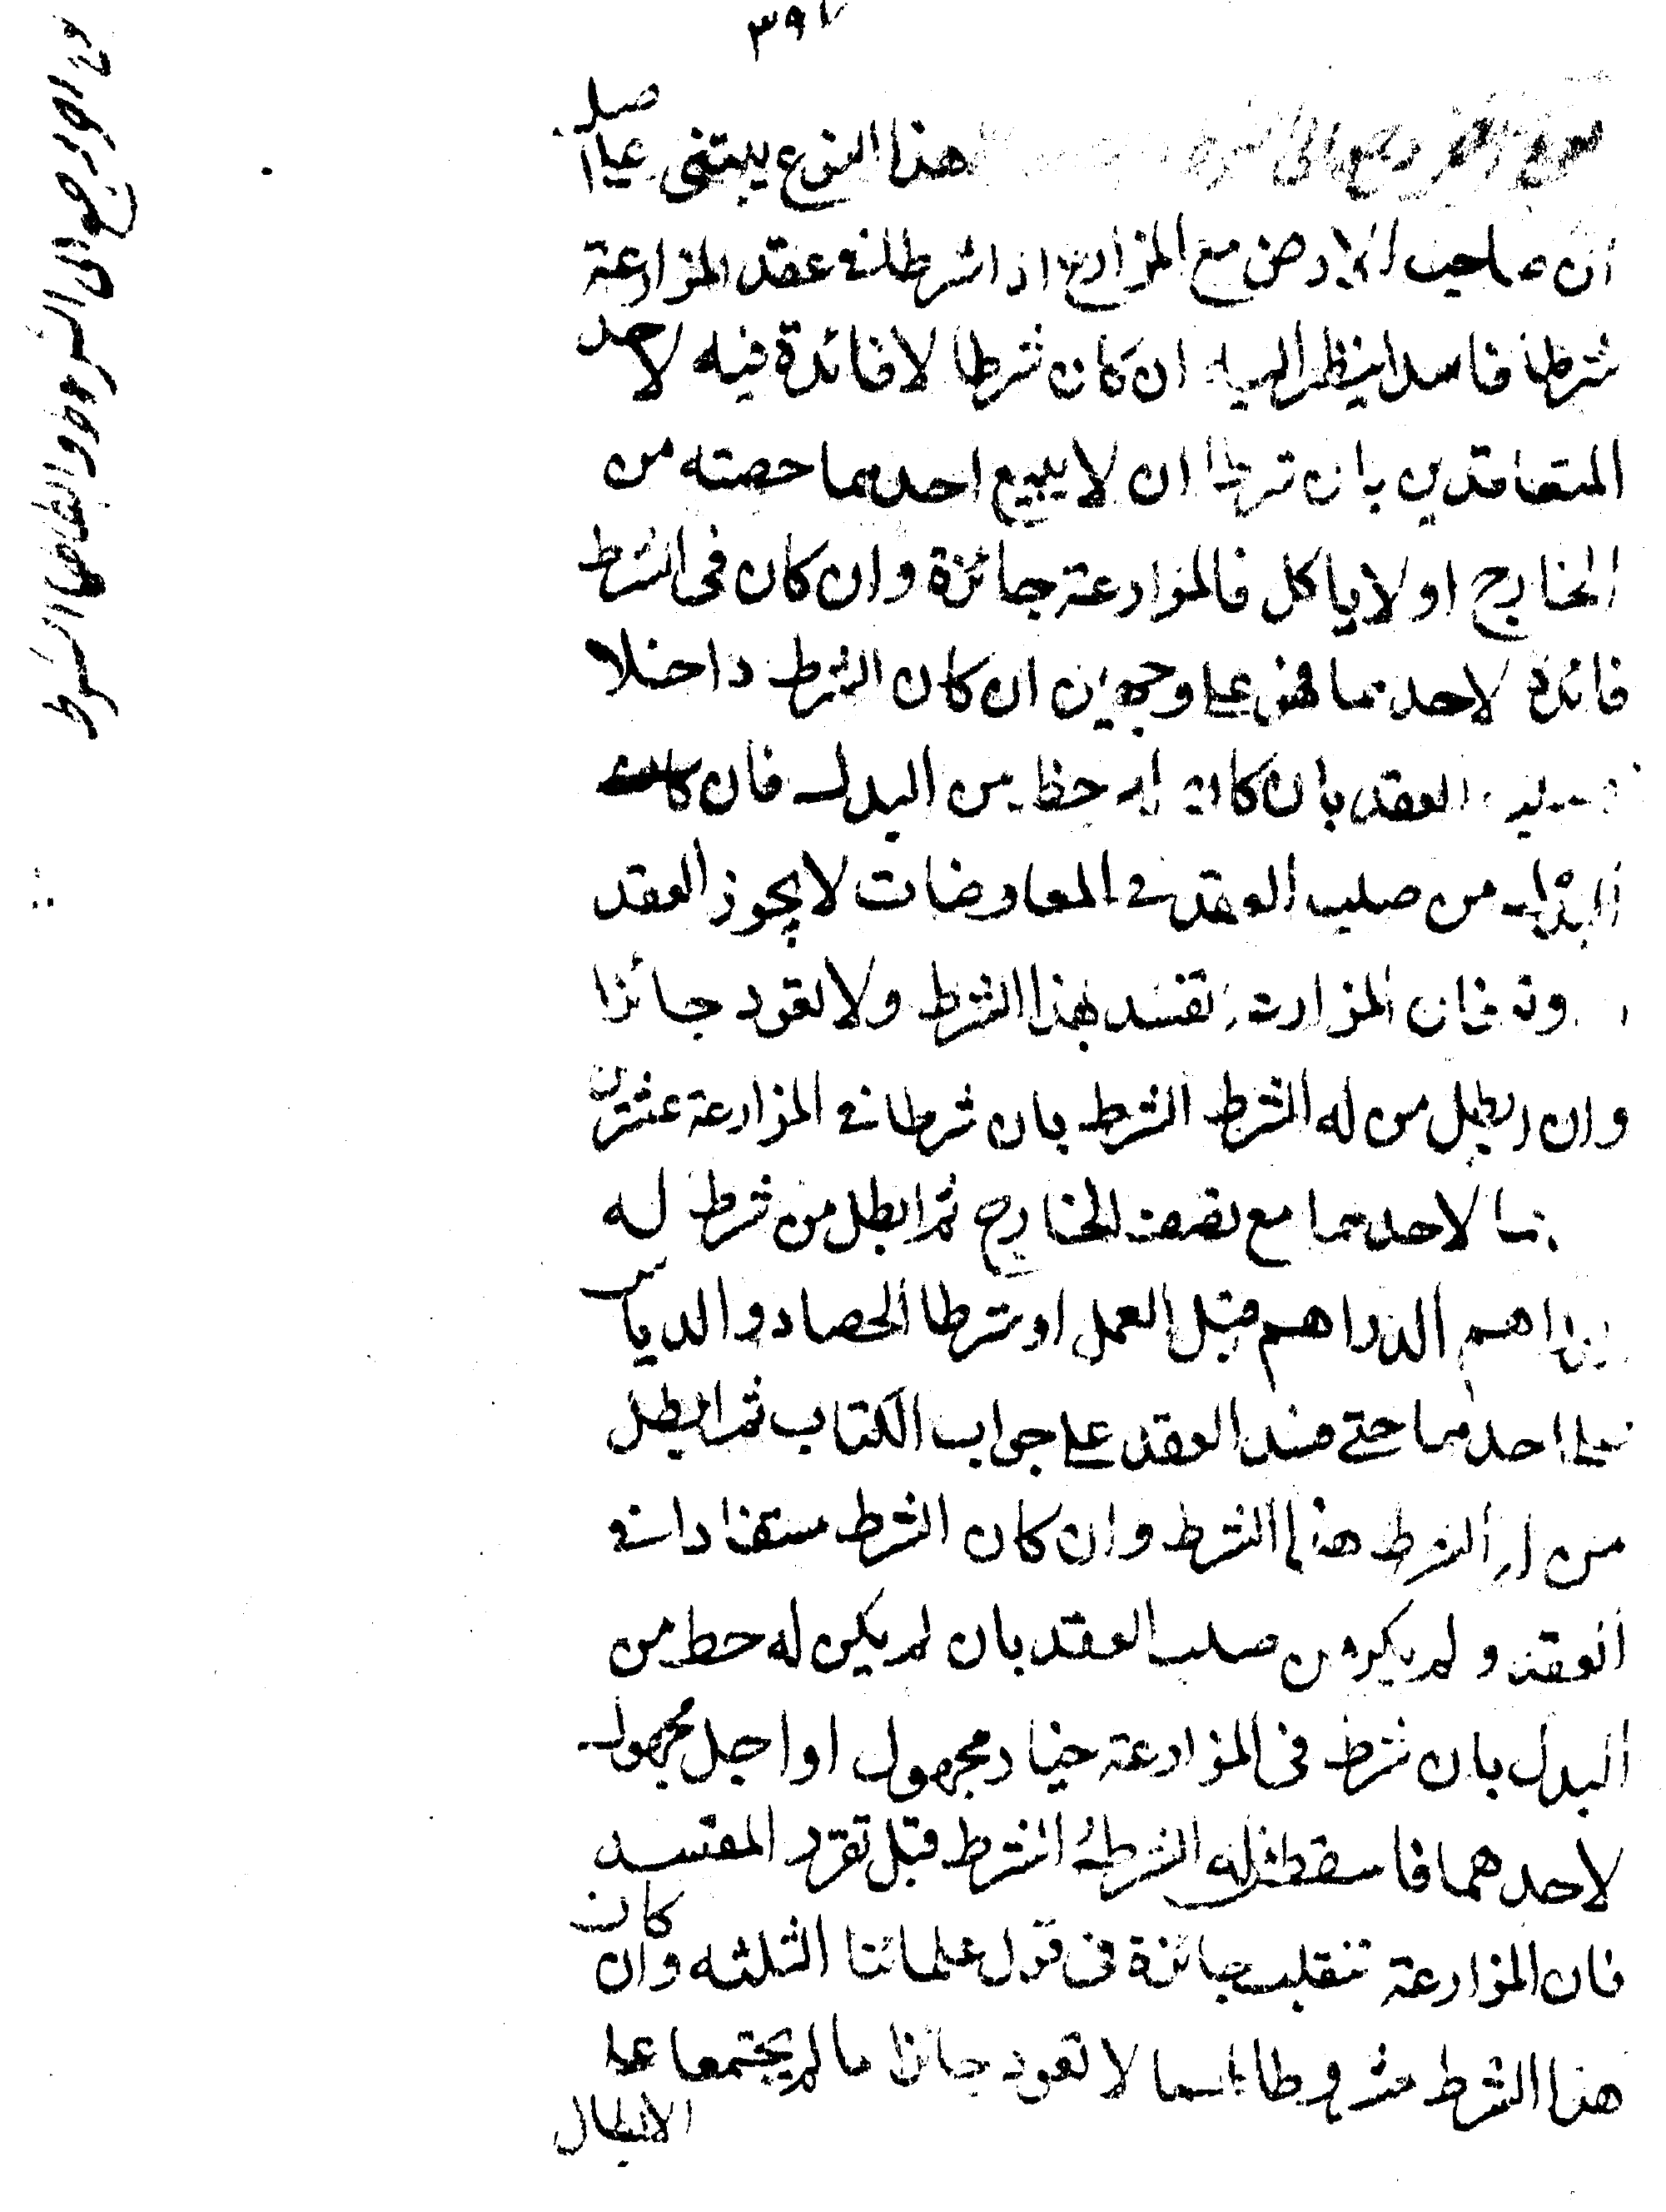 ٣٩٧
هذا النوع يبتنى على اصل
ان صاحب الارض مع المزارع اذا شرطا فى عقد المزارعة
شرطا فاسدا ينظر اليه ان كان شرطا لا فائدة فيه لاحد
المتعاقدين بان شرطا ان لا يبيع احدهما حصته من
الخارج او لا ياكل فالمزارعة جائزة وان كان فى الشرط
فائدة لاحدهما فهو على وجهين ان كان الشرط داخلا
العقد بان كان له حظ من البدل فان
البدل من صلب العقد فى المعاوضات لا يجوز العقد
فان المزارعة تفسد بهذا الشرط ولا تعود جائزا
وان ابطل من له الشرط الشرط بان شرطا فى المزارعة عشرين
لاحدهما مع نصف الخارج ثم ابطل من شرط له
الدراهم الدراهم قبل العمل او شرطا الحصاد والدياس
على احدهما حتى فسد العقد على جواب الكتاب ثم ابطل
من له الشرط هذا الشرط وان كان الشرط مستفادا فى
العقد ولم يكن من صلب العقد بان لم يكن له حظ من
البدل بان شرط فى المزارعة خيار مجهول او اجل مجهول
لاحدهما فاسقط من له الشرط الشرط قبل تقرر المفسد
فان المزارعة تنقلب جائزة فى قول علمائنا الثلثه وان كان
هذا الشرط مشروطا لهما لا تعود جائزا ما لم يجتمعا على
الابطال